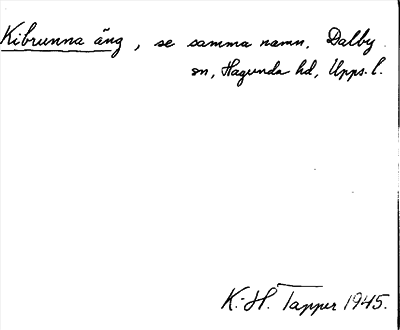 Kibrunna äng, se samma namn, Dalby
sn, Hagunda hd, Upps. l.
K.-H. Tapper 1945.